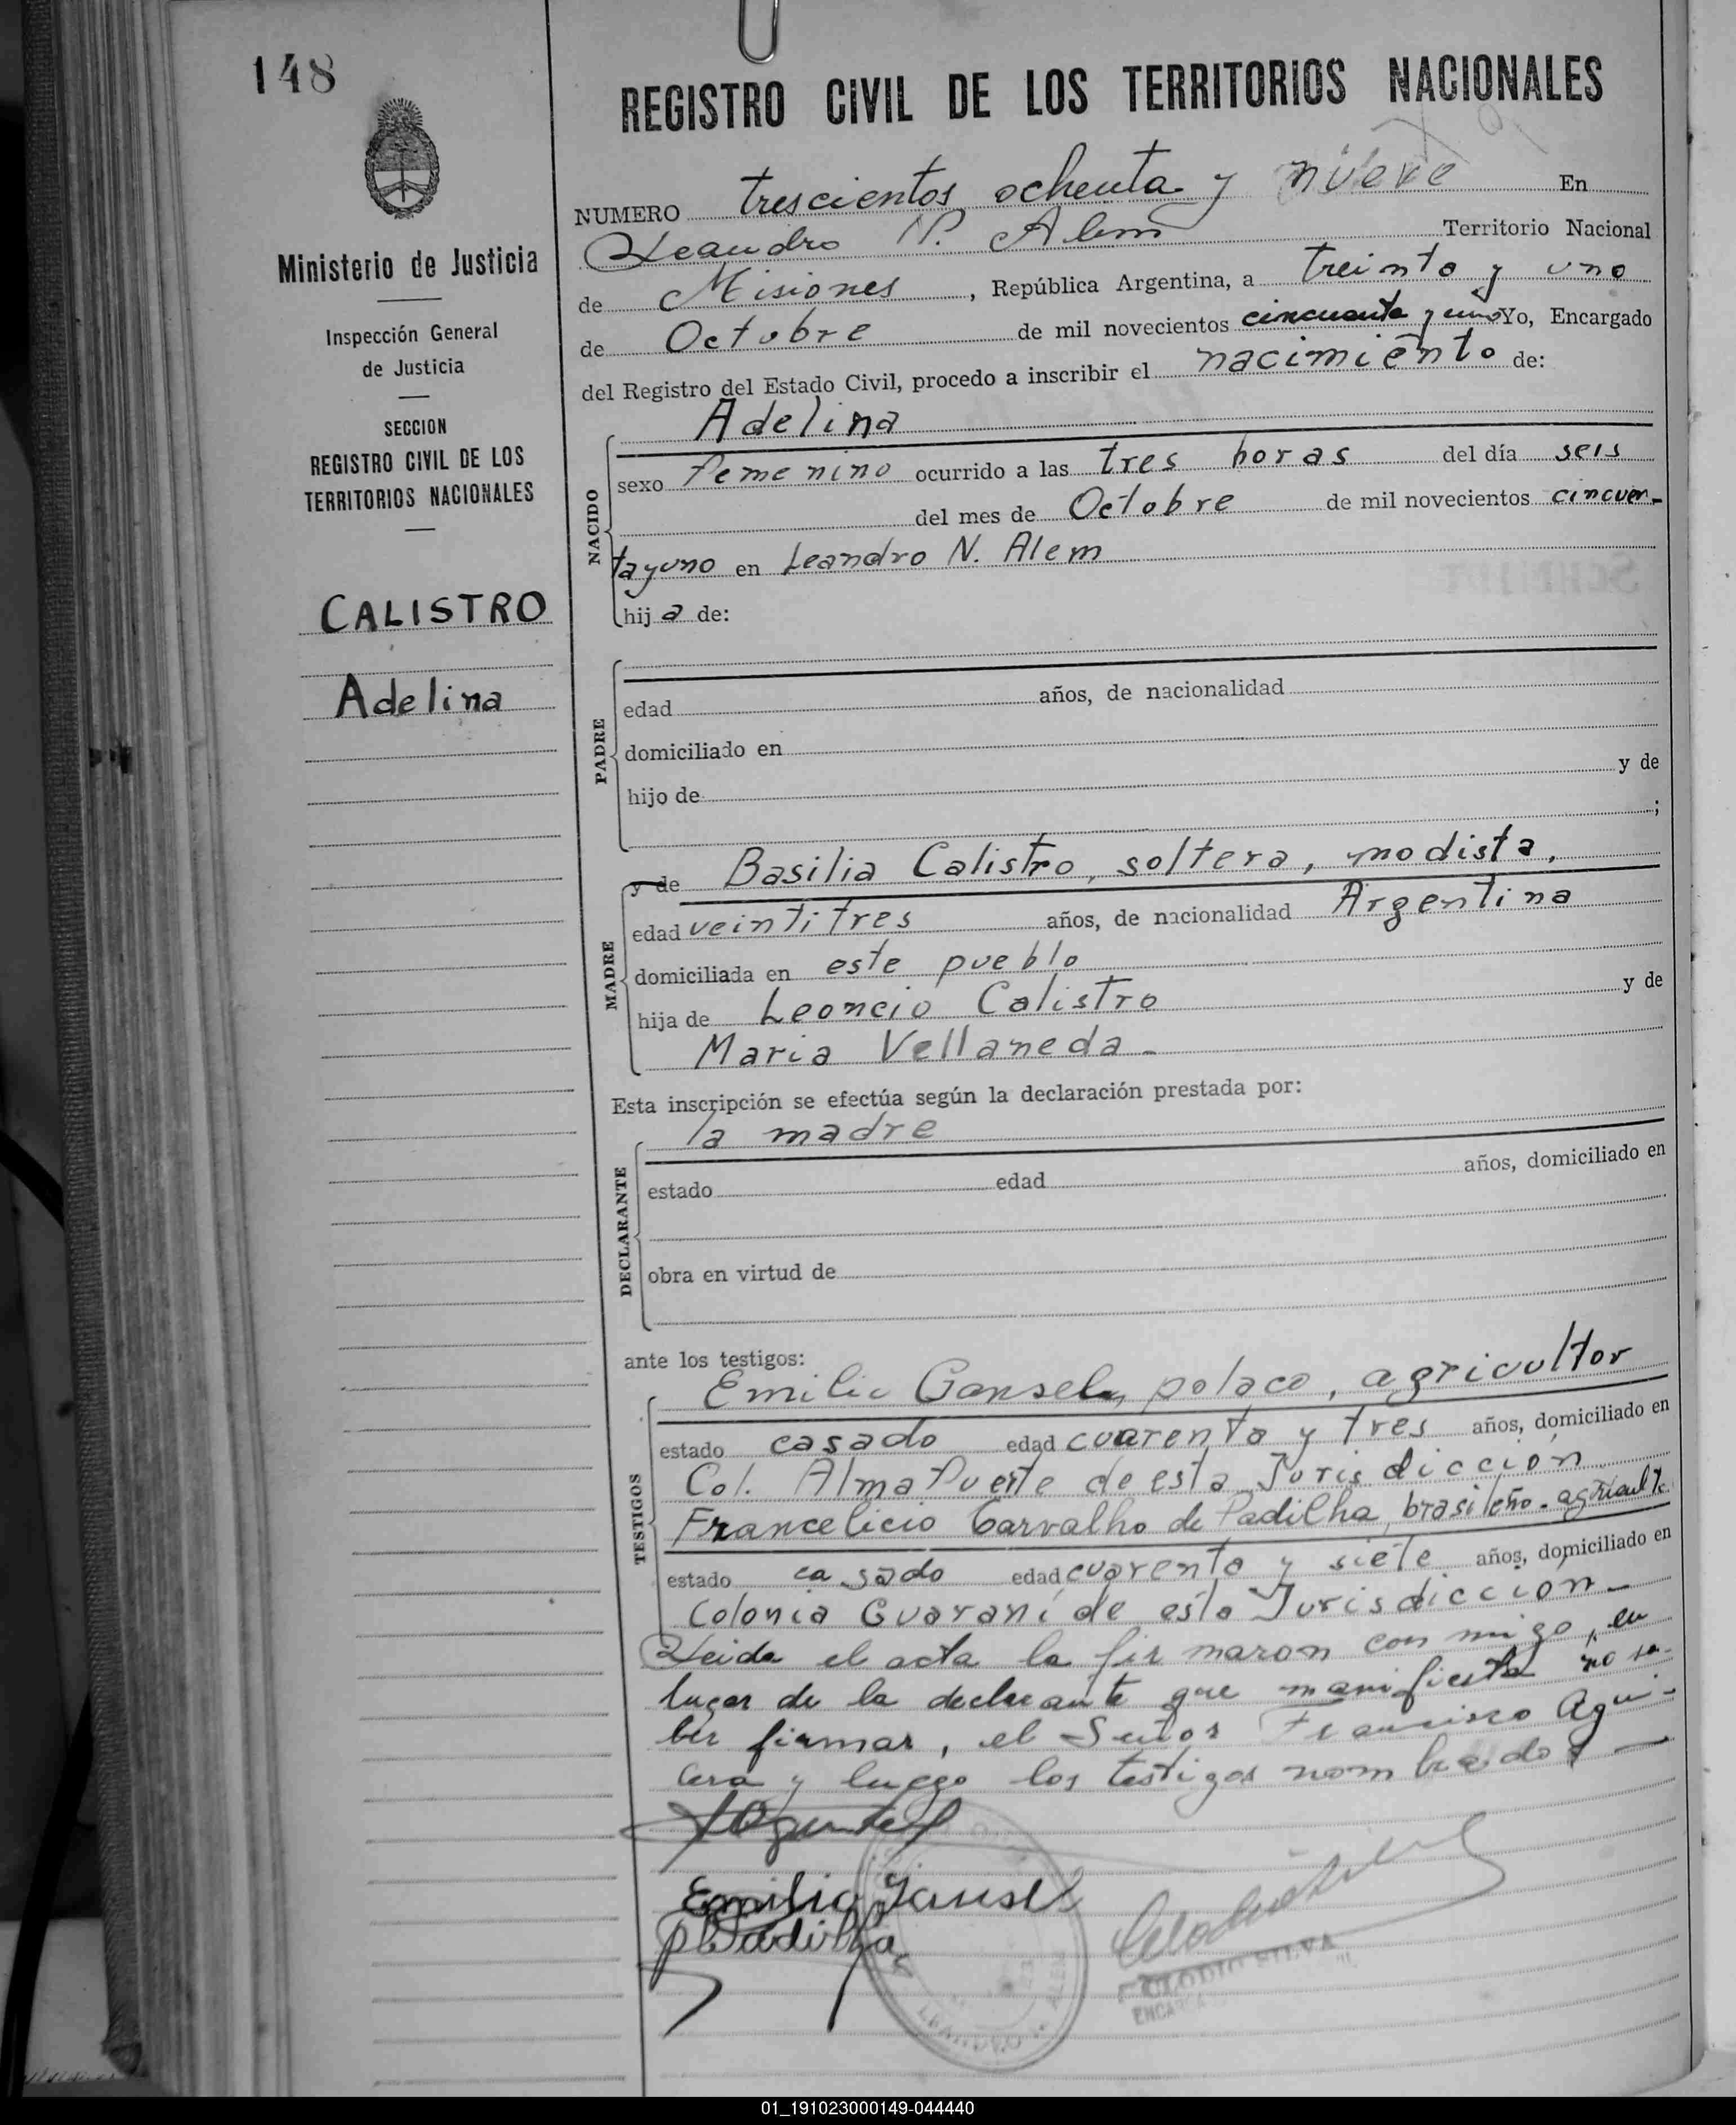 148
REGISTRO CIVIL DE LOS TERRITORIOS NACIONALES
NUMERO trescientos ochenta y nueve En
Leandro N. Alem Territorio Nacional
de Misiones, República Argentina, a treinta y uno
de Octubre de mil novecientos cincuenta y uno Yo, Encargado
del Registro del Estado Civil, procedo a inscribir el nacimiento de:
Ministerio de Justicia
Inspección General
de Justicia
SECCION
REGISTRO CIVIL DE LOS
TERRITORIOS NACIONALES
CALISTRO
Adelina
NACIDO
Adelina
sexo femenino ocurrido a las tres horas del día seis
del mes de Octubre de mil novecientos cincuen-
tayuno en Leandro N. Alem
hija de:
PADRE
edad años, de nacionalidad
domiciliado en
hijo de y de
;
MADRE
y de Basilia Calistro, soltera, modista,
edad veintitres años, de nacionalidad Argentina
domiciliada en este pueblo
hija de Leoncio Calistro y de
Maria Vellaneda -
Esta inscripción se efectúa según la declaración prestada por:
la madre
DECLARANTE
estado edad años, domiciliado en
obra en virtud de
ante los testigos:
TESTIGOS
Emilio Gansel, polaco, agricultor
estado casado edad cuarenta y tres años, domiciliado en
Col. Almafuerte de esta Jurisdicción
Francelicio Carvalho de Padilha, brasileño - agricult.
estado casado edad cuarenta y siete años, domiciliado en
Colonia Guaraní de esta Jurisdicción -
Leida el acta la firmaron con migo, en
lugar de la declarante que manifiesta no sa-
ber firmar, el Señor Francisco Agui-
lera y luego los testigos nombrados -
Emilio Gansel
Padilha
CLODIO SILVA
LEANDRO N. ALEM
01_191023000149-044440